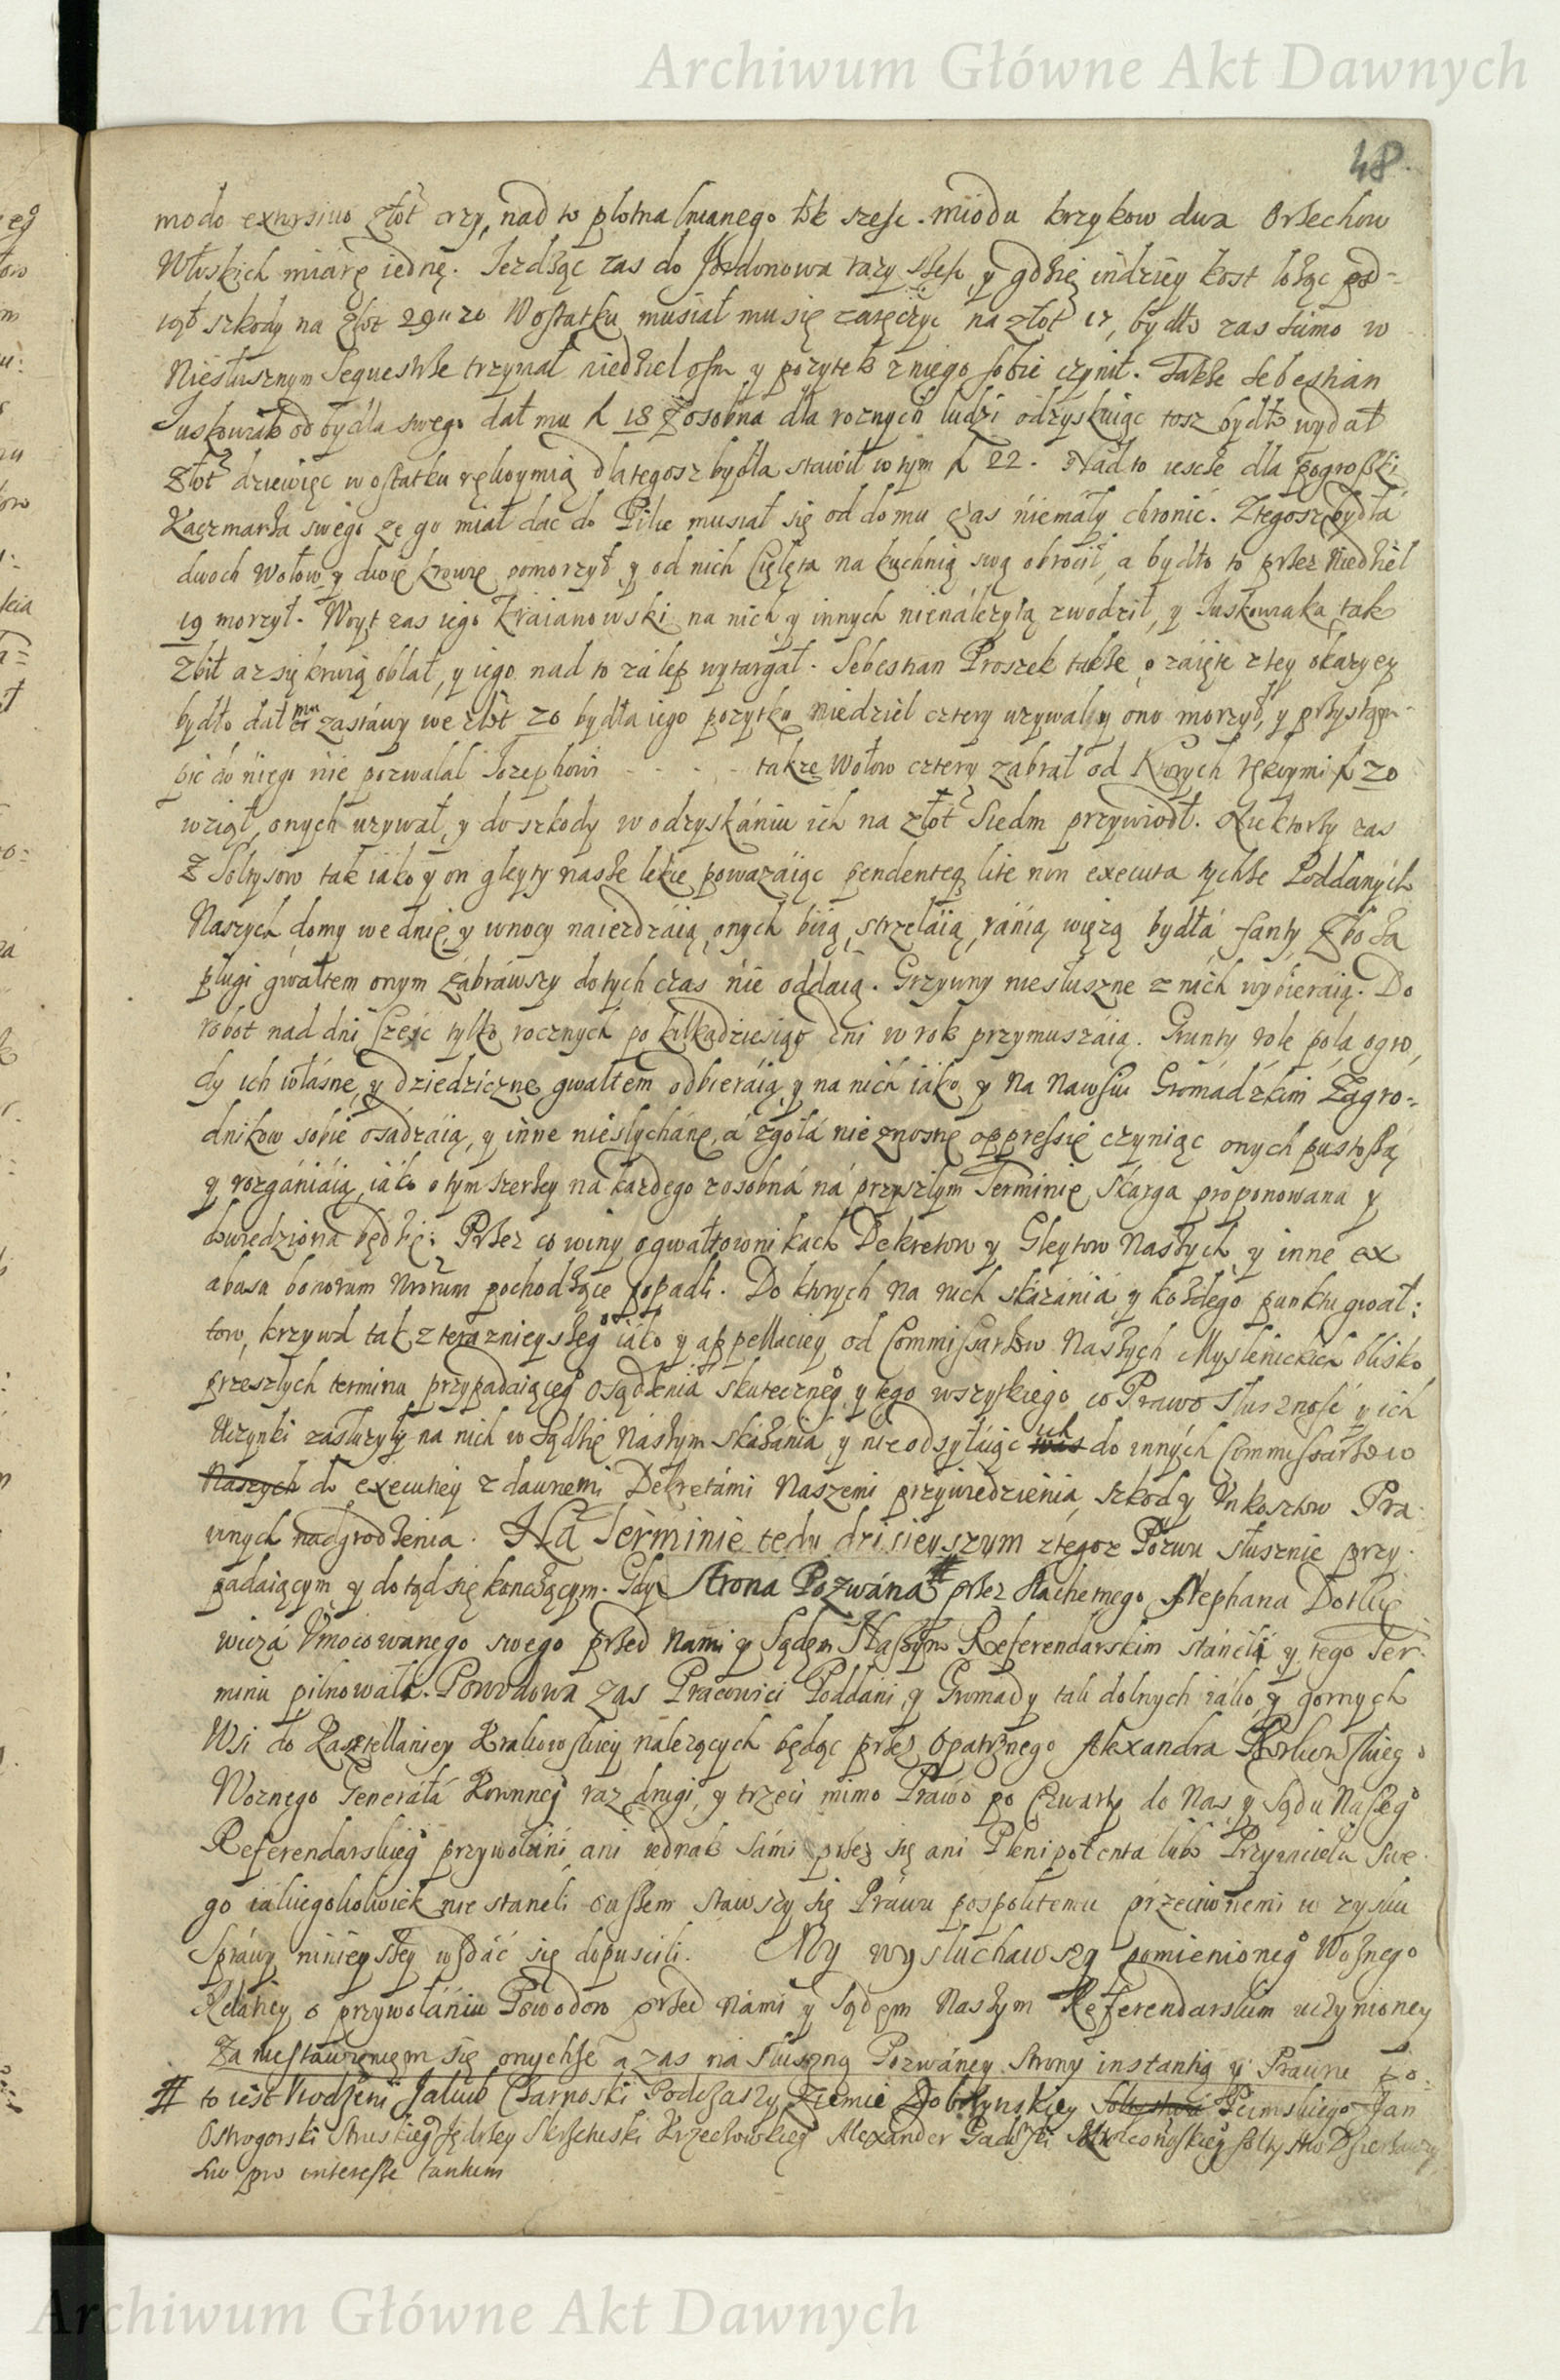 Archiwum Główne Akt Dawnych
48.
modo extorsiuo złot trzy, nad to płotna lnianego łok szesc. miodu krzykow dwa Orzechow
Włoskich miarę iednę. Iezdząc zas do Iordonowa razy szesc, y gdzie indziey koszt łożąc pod=
iął szkody na złot 29 u 20 Wostatku musiał mu się zaręczyc na złot 17, bydło zas samo w
Niesłusznym Sequestrze trzymał niedziel osm y pozytek z niego sobie czynił. Takze Sebestian
Iuskowiak od bydła swego dał mu f. 18 Zosobna dla roznych ludzi odzyskuiąc tosz bydło wydał
złot dziewięc w ostatku rękoymią dla tegosz bydła stawił w tym f. 22. Nad to iescze dla pogrozki
Kaczmarza swego ze go miał dac do Pilce musiał się od domu czas niemały chronic. Z tegosz bydła
dwoch Wołow y dwie krowie pomorzył y od nich Cięlęta na kuchnią swą obrocił, a bydło to przez Niedziel
19 morzył. Woyt zas iego Kraianowski na nich y innych nienalezytą zwodził, y Iuskowiaka tak
zbił az się krwią oblał, y iego nad to za łep wytargał. Sebestian Proszek takze o zaięte z tey okazyey
bydło dał mu zastawy we złot 20 bydła iego pozytku Niedziel cztery uzywał y ono morzył, y przystąm=
pic do niego nie pozwalał Iozephowi - - - - takze Wołow cztery zabrał od Ktorych rękoymi f. 20
wziął, onych uzywał, y do szkody w odzyskaniu ich na złot Siedm przywiodł. Niektorzy zas
z Soltysow tak iako y on gleyty nasze lekce powazaiąc pendenteq lite non executa tychze Poddanych
Naszych domy we dnie y w nocy naiezdzaią, onych biią, strzelaią, ranią, więzą bydła fanty Zboza
pługi gwałtem onym zabrawszy do tych czas nie oddaią. Grzywny niesłuszne z nich wybieraią. Do
robot nad dni Czesc tylko rocznych po kilkadziesiąt dni w rok przymuszaią. Grunty role pola ogro,
dy ich własne y dziedziczne gwałtem odbieraią y na nich iako y na Nawsiu Gromadzkim Zagro=
dnikow sobie osadzaią, y inne niesłychane, a zgoła nieznosne oppressię czyniąc onych pustoszą
y rozganiaią, iako o tym szerzey na kazdego zosobna na przyszłym Terminie Skarga proponowana y
dowiedziona będzie: Przez co winy o gwałtownikach Dekretow y Gleytow Naszych y inne ex
abusu bonorum Nrorum pochodzące popadli. Do ktorych na nich skazania y kozdego punktu gwał:
tow, krzywd tak z teraznieyszego iako y appellaciey od Commissarzow Naszych Myslenickich blisko
przeszłych terminu przypadaiącego osądzenia skutecznego y tego wszystkiego co Prawo Słusznosc y ich
Uczynki zasłuzyły na nich w Sądzie Naszym Skazania y nie odsyłaiąc ich do innych Commissarzow
Naszych do executiey z dawnemi Dekretami Naszemi przywiedzienia szkod y Unkosztow Pra=
wnych nadgrodzenia. Na Terminie tedy dzisieyszym z tegoz Pozwu słusznie przy=
padaiącym y dotąd się konczącym. Gdy Strona Pozwana # przez Slachetnego Stephana Dorlue
wicza Umocowanego swego przed Nami y Sądem Naszym Referendarskim stanęli y tego Ter=
minu pilnowała. Powodowa zas Pracowici Poddani y Gromady tak dolnych iako y gornych
Wsi do Kasztellaniey Krakowskiey nalezących będąc przez Opatrznego Alexandra
Woznego Generała Koronnego raz drugi y trzeci mimo Prawo po Czwarty do Nas y Sądu Naszego
Referendarskiego przywołani ani iednak sami przez się ani Plenipotenta lub Przyiaciela Swe=
go iakiegokolwiek nie staneli owszem stawszy się Prawu pospolitemu przeciwnemi w zysku
Sprawy ninieyszey wzdać się dopuscili. My wysłuchawszy pomienionego Woznego
Relaciey o przywołaniu Powodow przed Nami y Sądem Naszym Referendarskim uczynioney
Za niestawieniem się onychze a zas na słuszną Pozwaney Strony instantią y Prawne po=
# to iest Urodzeni Jakub Czarnoski Podczaszy Ziemie Dobrzynskiey Soltystwa Pcimskiego Jan
Ostrogorski Struskiego Jędrzey Skrzetuski Krzeczowskiego Alexander Gadoski sołtystwo Dzierzawcy
suo pro interesse tantum
Archiwum Główne Akt Dawnych